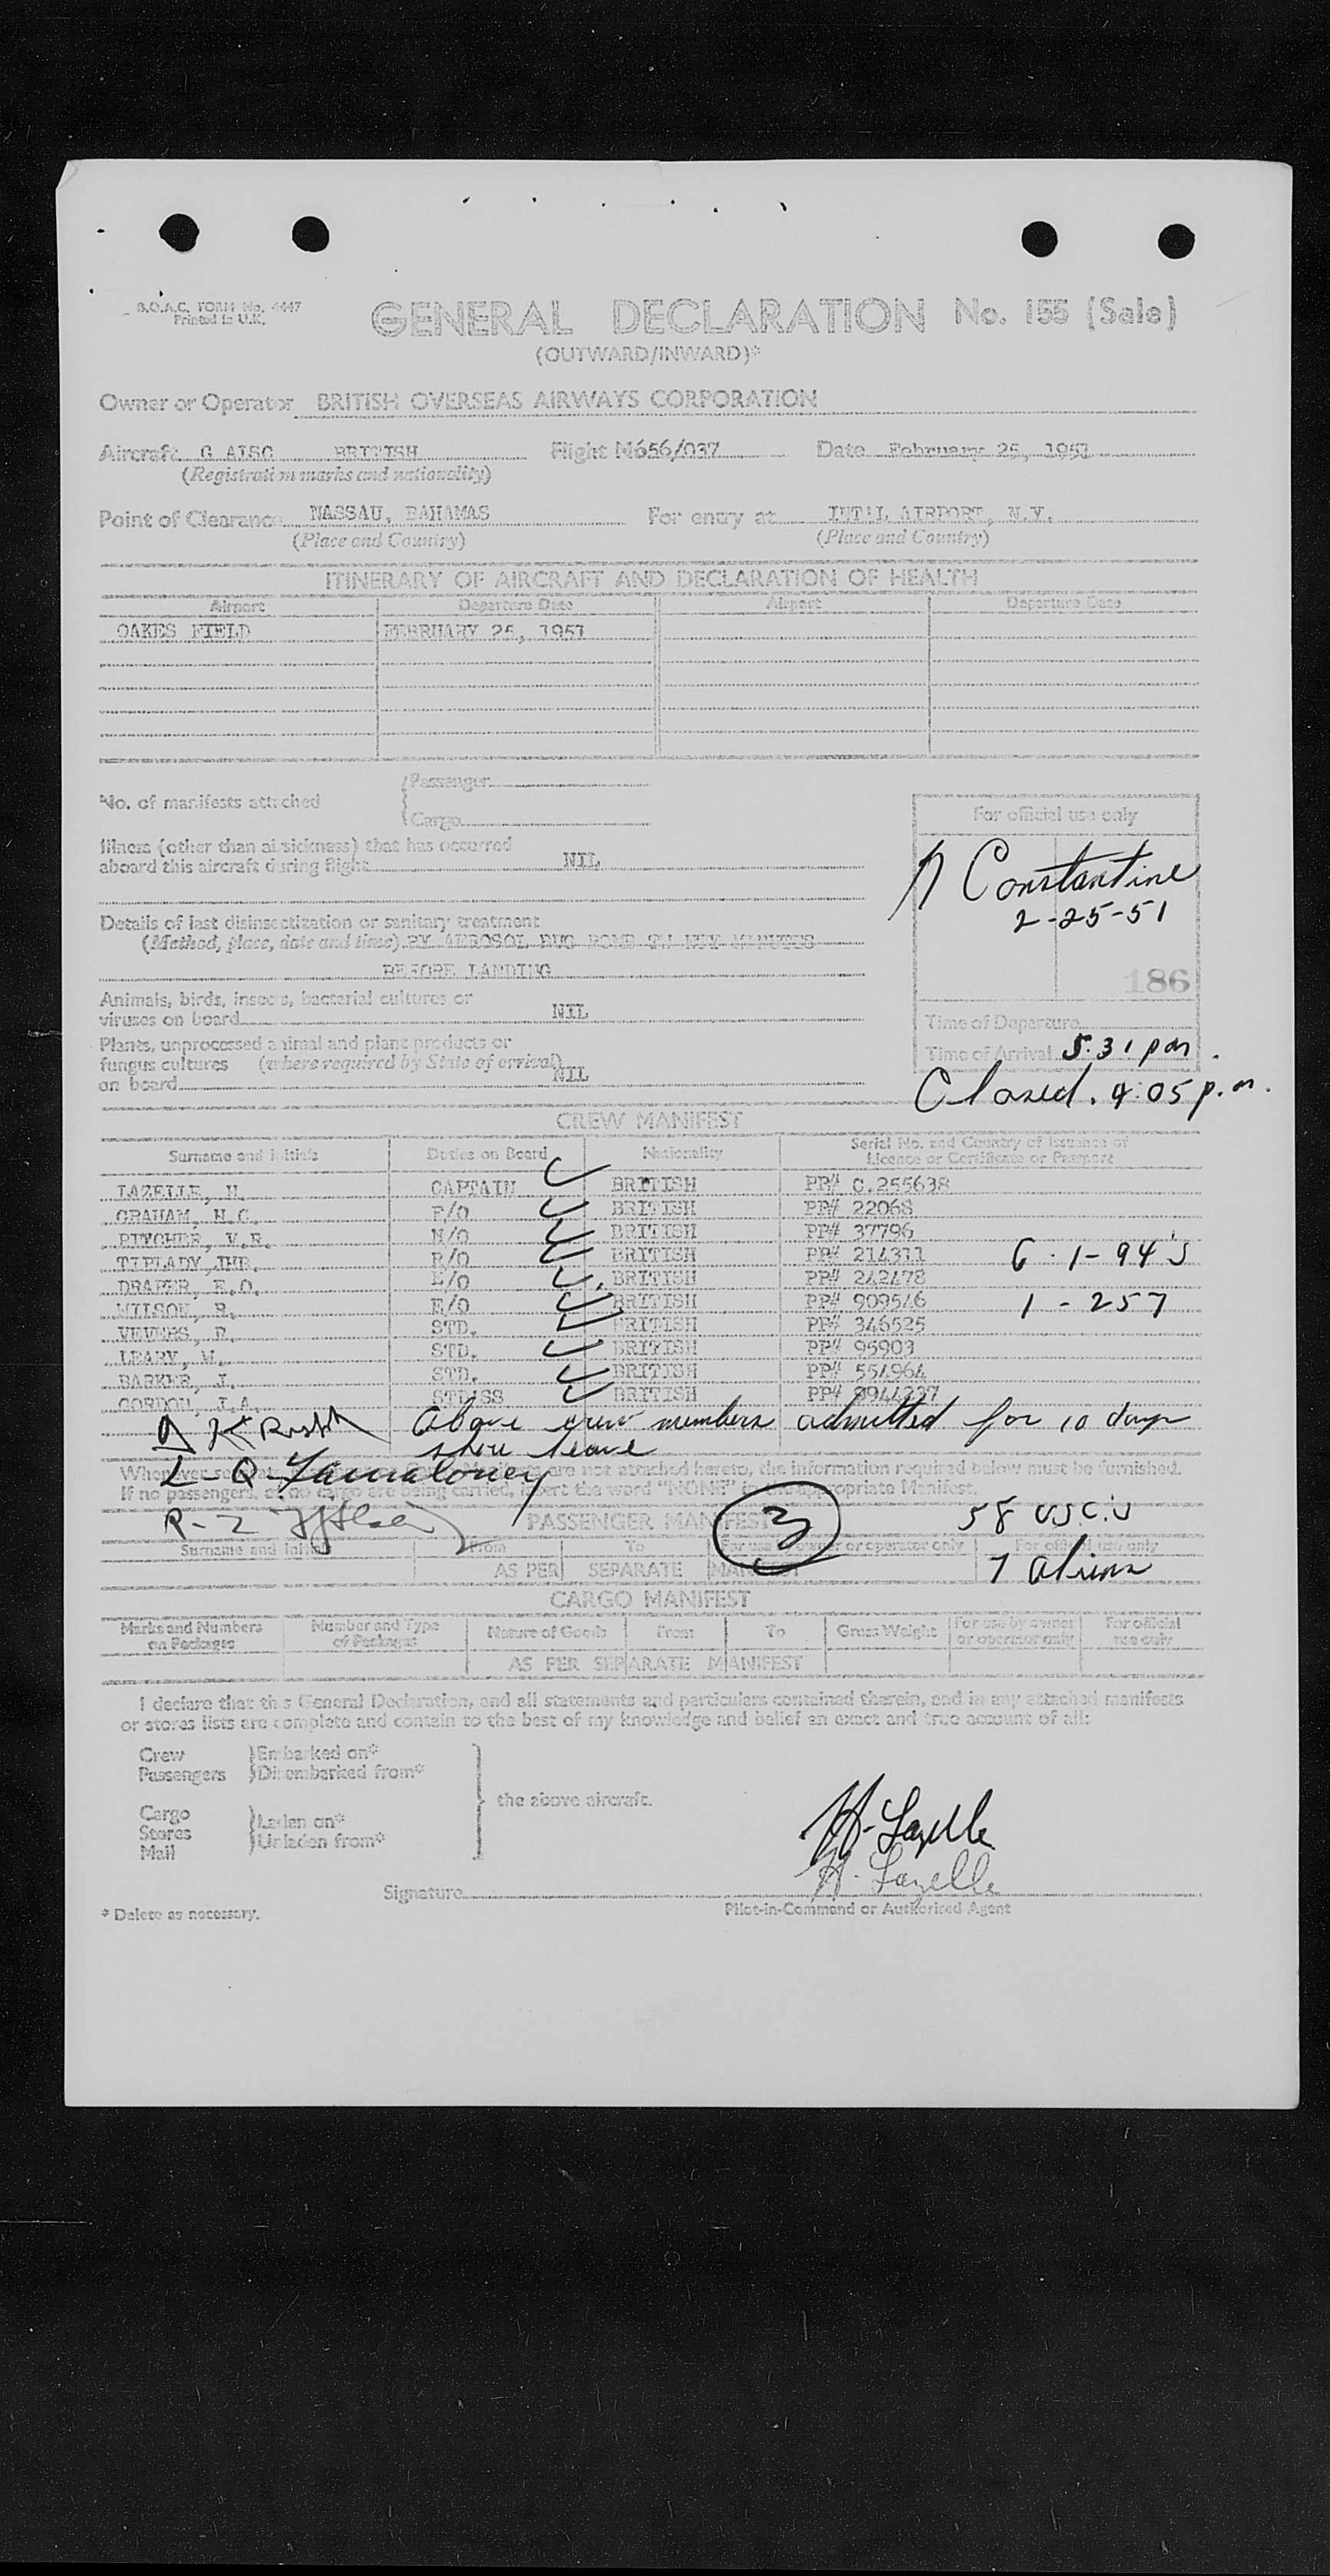 B.O.A.C. FORM No. 4447
Printed in U.K.
GENERAL DECLARATION No. 155 (Sale)
(OUTWARD/INWARD)*
Owner or Operator BRITISH OVERSEAS AIRWAYS CORPORATION
Aircraft BRITISH Flight M656/037 Date February 25, 1951
(Registration marks and nationality)
Point of Clearance NASSAU, BAHAMAS For entry at INT'L AIRPORT, N.Y.
(Place and Country) (Place and Country)
ITINERARY OF AIRCRAFT AND DECLARATION OF HEALTH
Airport Departure Date Airport Departure Date
OAKES FIELD FEBRUARY 25, 1951
Passenger
No. of manifests attached
Cargo
For official use only
Illness (other than airsickness) that has occurred
aboard this aircraft during flight NIL
Constantine
2-25-51
Details of last disinsectization or sanitary treatment
(Method, place, date and time) BY AEROSOL BUG BOMB MINUTES
BEFORE LANDING
186
Animals, birds, insects, bacterial cultures or
viruses on board NIL
Time of Departure
Plants, unprocessed animal and plant products or
fungus cultures (where required by State of arrival)
on board NIL
Time of Arrival 5:31 pm.
Closed. 9:05 p.m.
CREW MANIFEST
Surname and initials Duties on Board Nationality Serial No. and Country of Issuance of
Licence or Certificate or Passport
LAZELLE, H. CAPTAIN BRITISH PP# C.255638
GRAHAM, H.G. F/O BRITISH PP# 22068
PITCHER, V.E. N/O BRITISH PP# 37796
TIPLADY, R/O BRITISH PP# 214311 6 1-94's
DRAPER, E.O. E/O BRITISH PP# 242478
WILSON, R. E/O BRITISH PP# 909546 1 - 257
STD. BRITISH PP# 346525
LEARY, W. STD. BRITISH PP# 95903
BARKER, J. STD. BRITISH PP# 554964
GORDON, J.A. STD/SS BRITISH PP#
Above crew members admitted for 10 days
shore leave
Whenever are not attached hereto, the information required below must be furnished.
If no passengers, or no cargo are being carried, insert the word "NONE" in the appropriate Manifest.
PASSENGER MANIFEST 3 58 U.S.C.'s
Surname and initials From To For use by owner or operator only For official use only
AS PER SEPARATE MANIFEST 7 Aliens
CARGO MANIFEST
Marks and Numbers on Packages Number and Type of Packages Nature of Goods From To Gross Weight For use by owner or operator only For official use only
AS PER SEPARATE MANIFEST
I declare that this General Declaration, and all statements and particulars contained therein, and in any attached manifests
or stores lists are complete and contain to the best of my knowledge and belief an exact and true account of all:
Crew Embarked on*
Passengers Disembarked from*
the above aircraft.
Cargo Laden on*
Stores
Unladen from*
Mail
H. Lazelle
H. Lazelle
Signature
* Delete as necessary. Pilot-in-Command or Authorised Agent